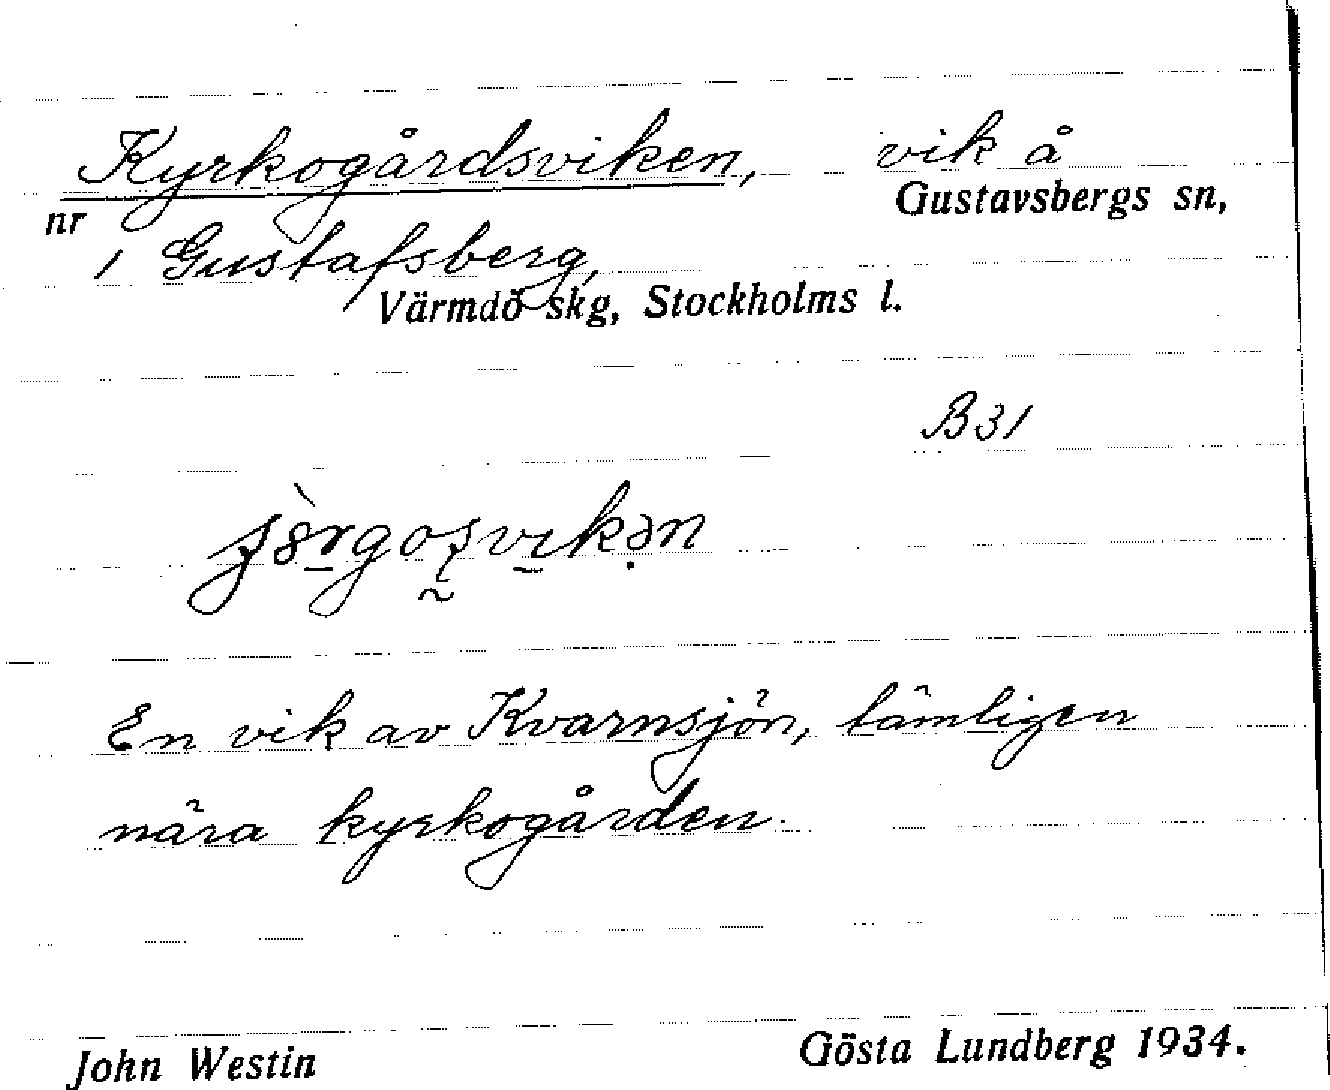 Kyrkogårdsviken, vik å
nr Gustavsbergs sn,
1 Gustafsberg,
Värmdö skg, Stockholms l.
B31
En vik av Kvarnsjön, tämligen
nära kyrkogården.
John Westin Gösta Lundberg 1934.